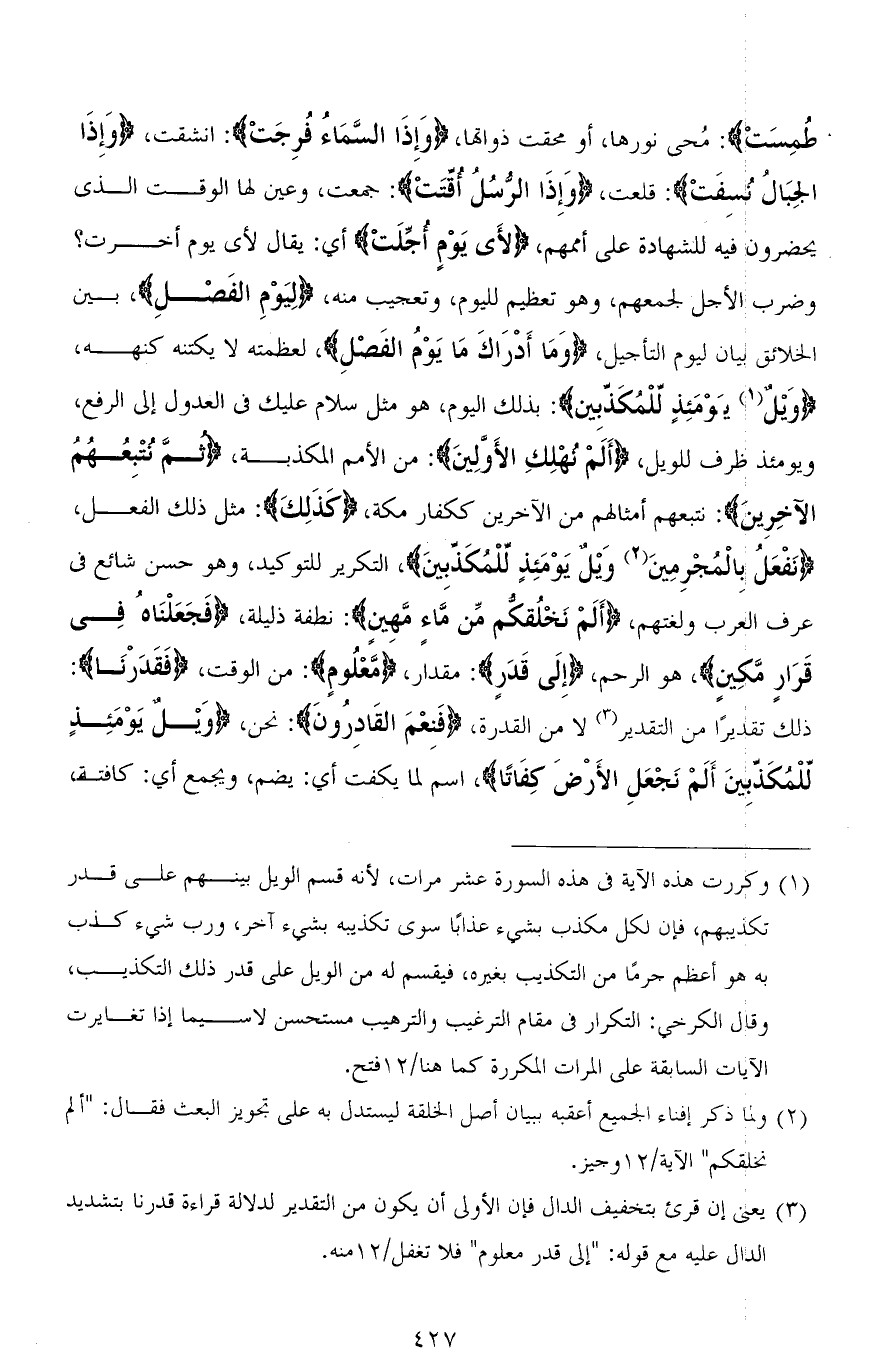 طُمِسَتْ﴾: مُحى نورها، أو محقت ذواتها، ﴿وَإِذَا السَّمَاءُ فُرِجَتْ﴾: انشقت، ﴿وَإِذَا
الجِبَالُ نُسِفَتْ﴾: قلعت، ﴿وَإِذَا الرُّسُلُ أُقِّتَتْ﴾: جمعت، وعين لها الوقت الذى
يحضرون فيه للشهادة على أممهم، ﴿لأَى يَوْمٍ أُجِّلَتْ﴾ أي: يقال لأى يوم أخرت؟
وضرب الأجل لجمعهم، وهو تعظيم لليوم، وتعجيب منه، ﴿لِيَوْمِ الفَصْلِ﴾، بين
الخلائق بيان ليوم التأجيل، ﴿وَمَا أَدْرَاكَ مَا يَوْمُ الفَصْلِ﴾، لعظمته لا يكتنه كنهه،
﴿وَيْلٌ(١) يَوْمَئِذٍ لِّلْمُكَذِّبِين﴾: بذلك اليوم، هو مثل سلام عليك فى العدول إلى الرفع،
ويومئذ ظرف للويل، ﴿أَلَمْ نُهْلِكِ الأَوَّلِينَ﴾: من الأمم المكذبة، ﴿ثُمَّ نُتْبِعُهُمُ
الآخِرِينَ﴾: نتبعهم أمثالهم من الآخرين ككفار مكة، ﴿كَذَلِكَ﴾: مثل ذلك الفعل،
﴿نَفْعَلُ بِالْمُجْرِمِينَ(٢) وَيْلٌ يَوْمَئِذٍ لِّلْمُكَذِّبِينَ﴾، التكرير للتوكيد، وهو حسن شائع فى
عرف العرب ولغتهم، ﴿أَلَمْ نَخْلُقكُّم مِّن مَّاءٍ مَّهِينٍ﴾: نطفة ذليلة، ﴿فَجَعَلْنَاهُ فِى
قَرَارٍ مَّكِينٍ﴾، هو الرحم، ﴿إِلَى قَدَرٍ﴾: مقدار، ﴿مَّعْلُومٍ﴾: من الوقت، ﴿فَقَدَرْنَا﴾:
ذلك تقديرًا من التقدير(٣) لا من القدرة، ﴿فَنِعْمَ القَادِرُونَ﴾: نحن، ﴿وَيْلٌ يَوْمَئِذٍ
لِّلْمُكَذِّبِينَ أَلَمْ نَجْعَلِ الأَرْضَ كِفَاتًا﴾، اسم لما يكفت أي: يضم، ويجمع أي: كافتة،
(١) وكررت هذه الآية فى هذه السورة عشر مرات، لأنه قسم الويل بينهم على قدر
تكذيبهم، فإن لكل مكذب بشيء عذابًا سوى تكذيبه بشيء آخر، ورب شيء كذب
به هو أعظم جرمًا من التكذيب بغيره، فيقسم له من الويل على قدر ذلك التكذيب،
وقال الكرخي: التكرار فى مقام الترغيب والترهيب مستحسن لاسيما إذا تغايرت
الآيات السابقة على المرات المكررة كما هنا/١٢فتح.
(٢) ولما ذكر إفناء الجميع أعقبه ببيان أصل الخلقة ليستدل به على تجويز البعث فقال: "ألم
نخلقكم" الآية/١٢وجيز.
(٣) يعنى إن قرئ بتخفيف الدال فإن الأولى أن يكون من التقدير لدلالة قراءة قدرنا بتشديد
الدال عليه مع قوله: "إلى قدر معلوم" فلا تغفل/١٢منه.
٤٢٧